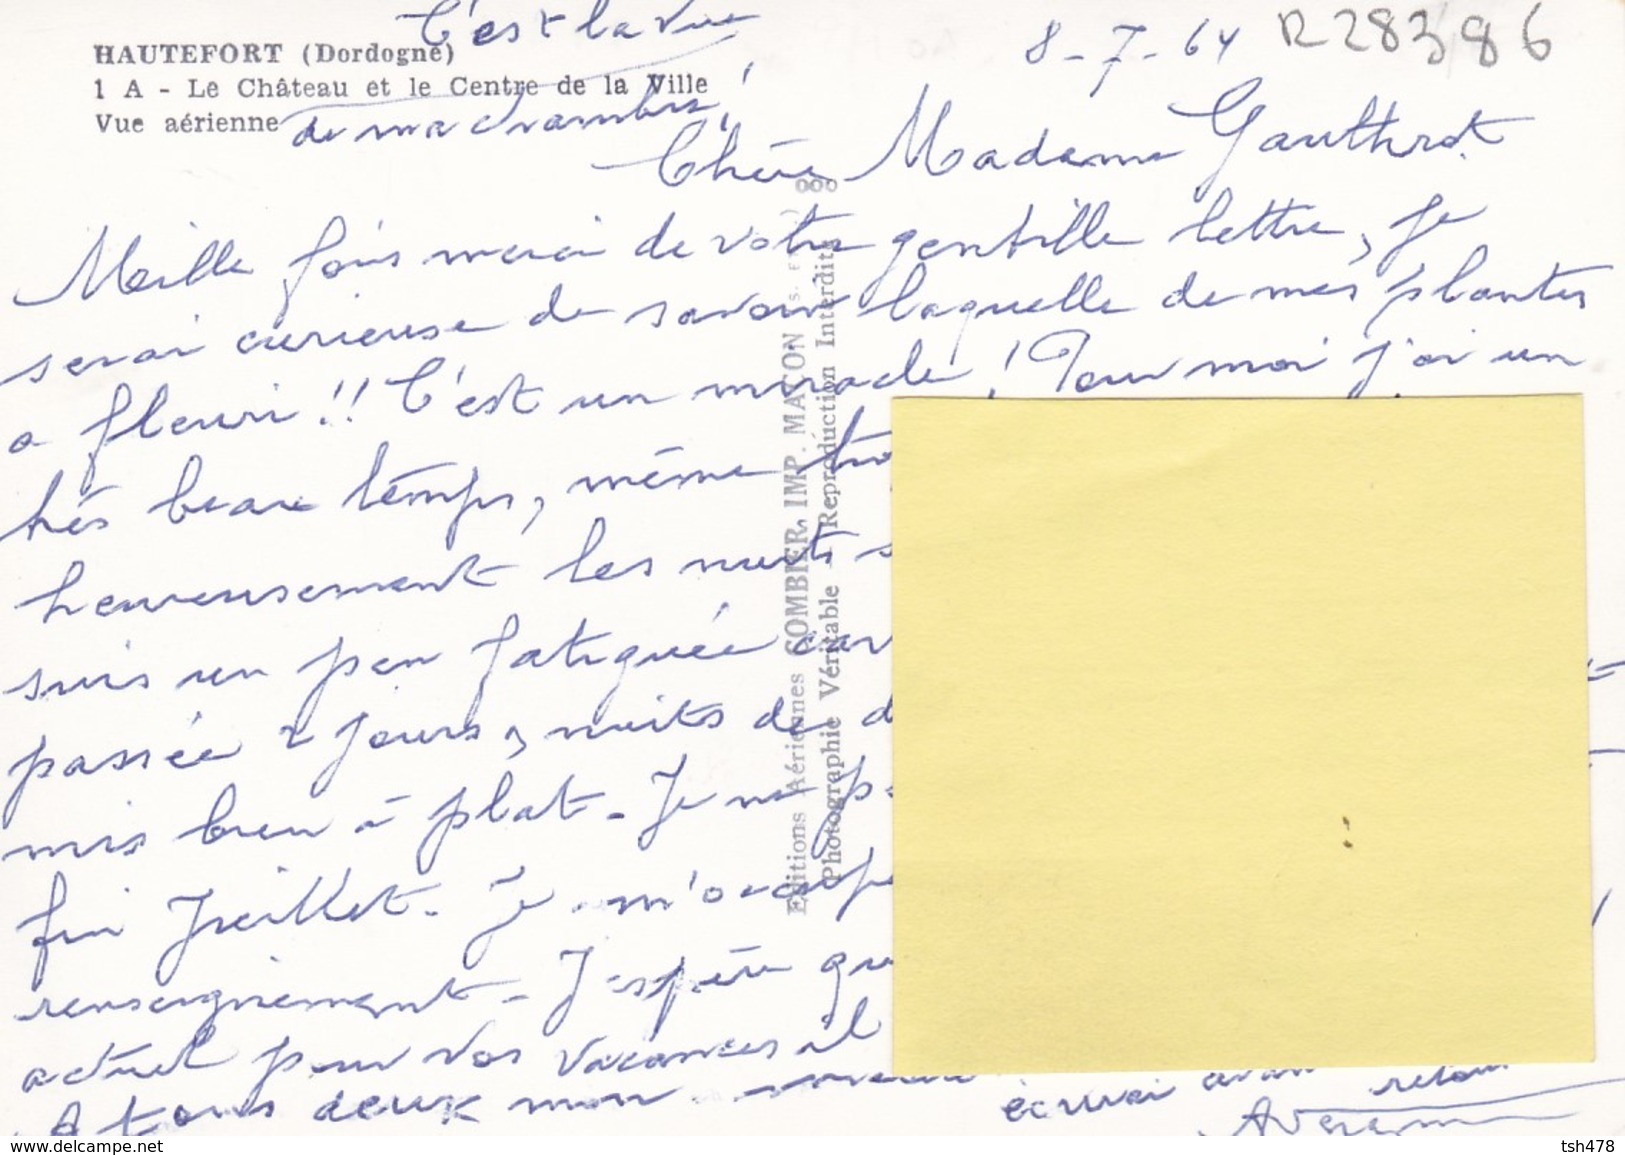 C'est la vue
HAUTEFORT (Dordogne)
1 A - Le Château et le Centre de la Ville
Vue aérienne
de ma chambre !
8-7-64
R 28386
Chère Madame Gauthrot
Mille fois merci de votre gentille lettre, je
serai curieuse de savoir laquelle de mes plantes
a fleuri !! C'est un miracle ! Pour moi j'ai un
très beau temps, même tro
heureusement les nuits s
suis un peu fatiguée car
passée 2 jours, nuits de d
mis bien à plat - Je ne p
fin Juillet - Je m'occupe
renseignement - J'espère qu
actuel pour vos vacances il
A tous deux mon
écrirai avant
retour
Editions Aériennes COMBIER IMP. MACON
Photographie Véritable - Reproduction Interdite
www.delcampe.net
tsh478